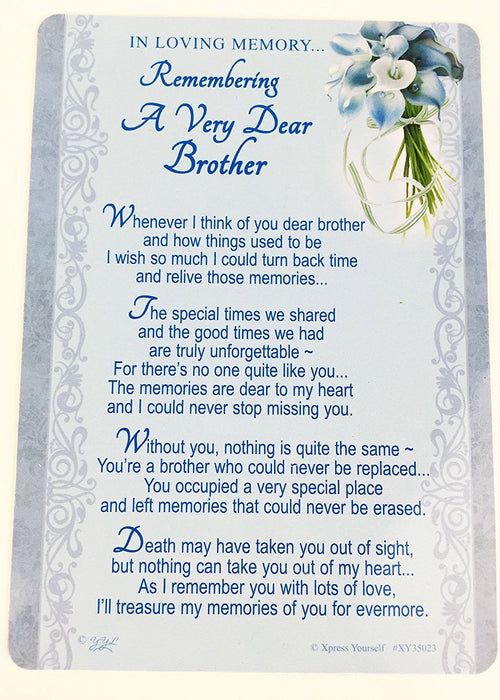 IN LOVING MEMORY...
Remembering
A Very Dear
Brother
Whenever I think of you dear brother
and how things used to be
I wish so much I could turn back time
and relive those memories...
The special times we shared
and the good times we had
are truly unforgettable ~
For there's no one quite like you...
The memories are dear to my heart
and I could never stop missing you.
Without you, nothing is quite the same ~
You're a brother who could never be replaced...
You occupied a very special place
and left memories that could never be erased.
Death may have taken you out of sight,
but nothing can take you out of my heart...
As I remember you with lots of love,
I'll treasure my memories of you for evermore.
© Xpress Yourself #XY35023